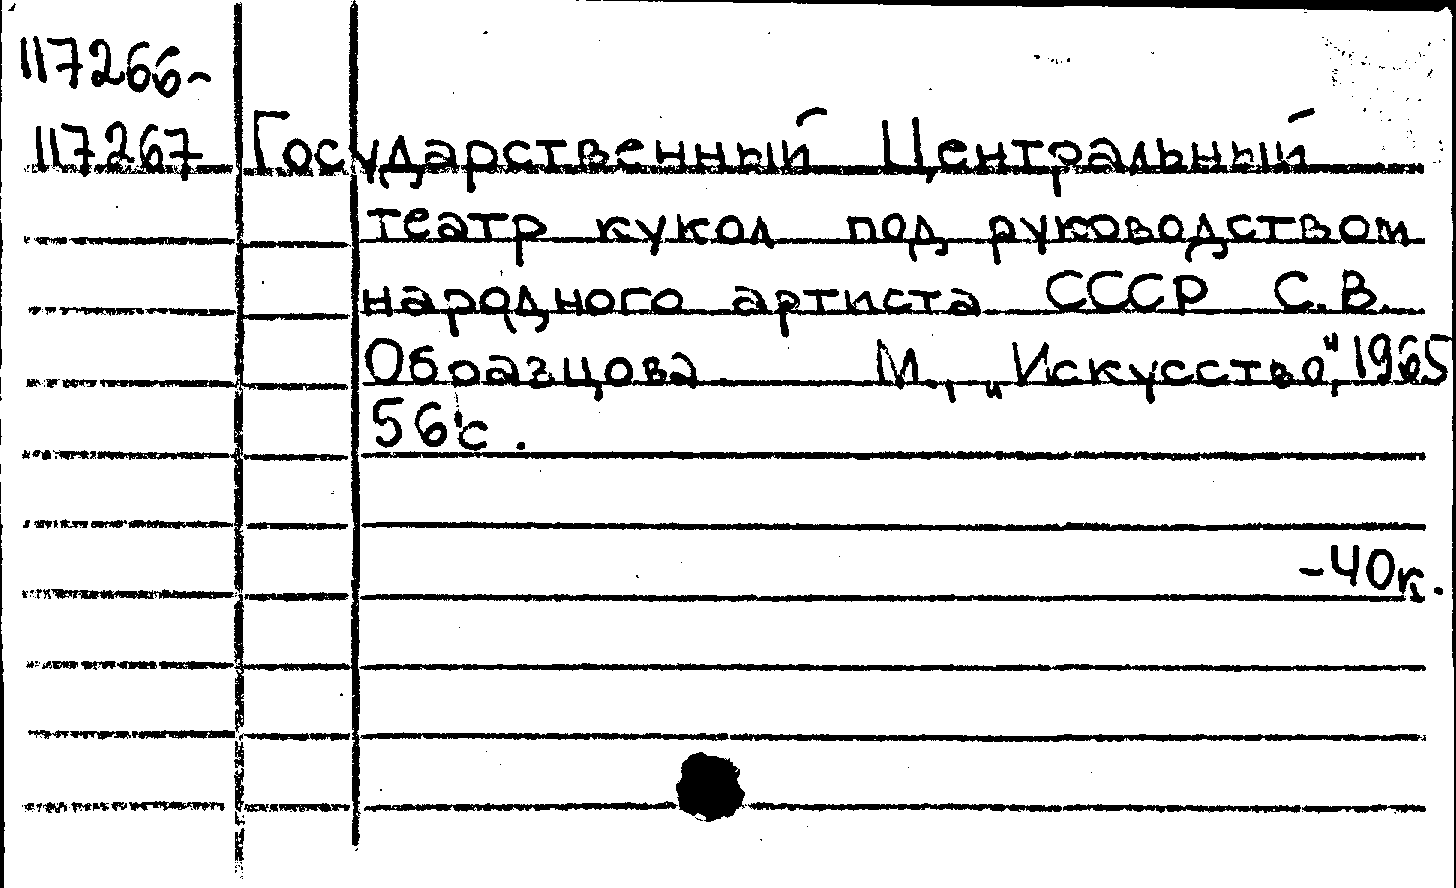 117266-
117267 Государственный Центральный
театр кукол под руководством
народного артиста СССР С.В.
Образцова М., „Искусство", 1965
56 с.
-40к.